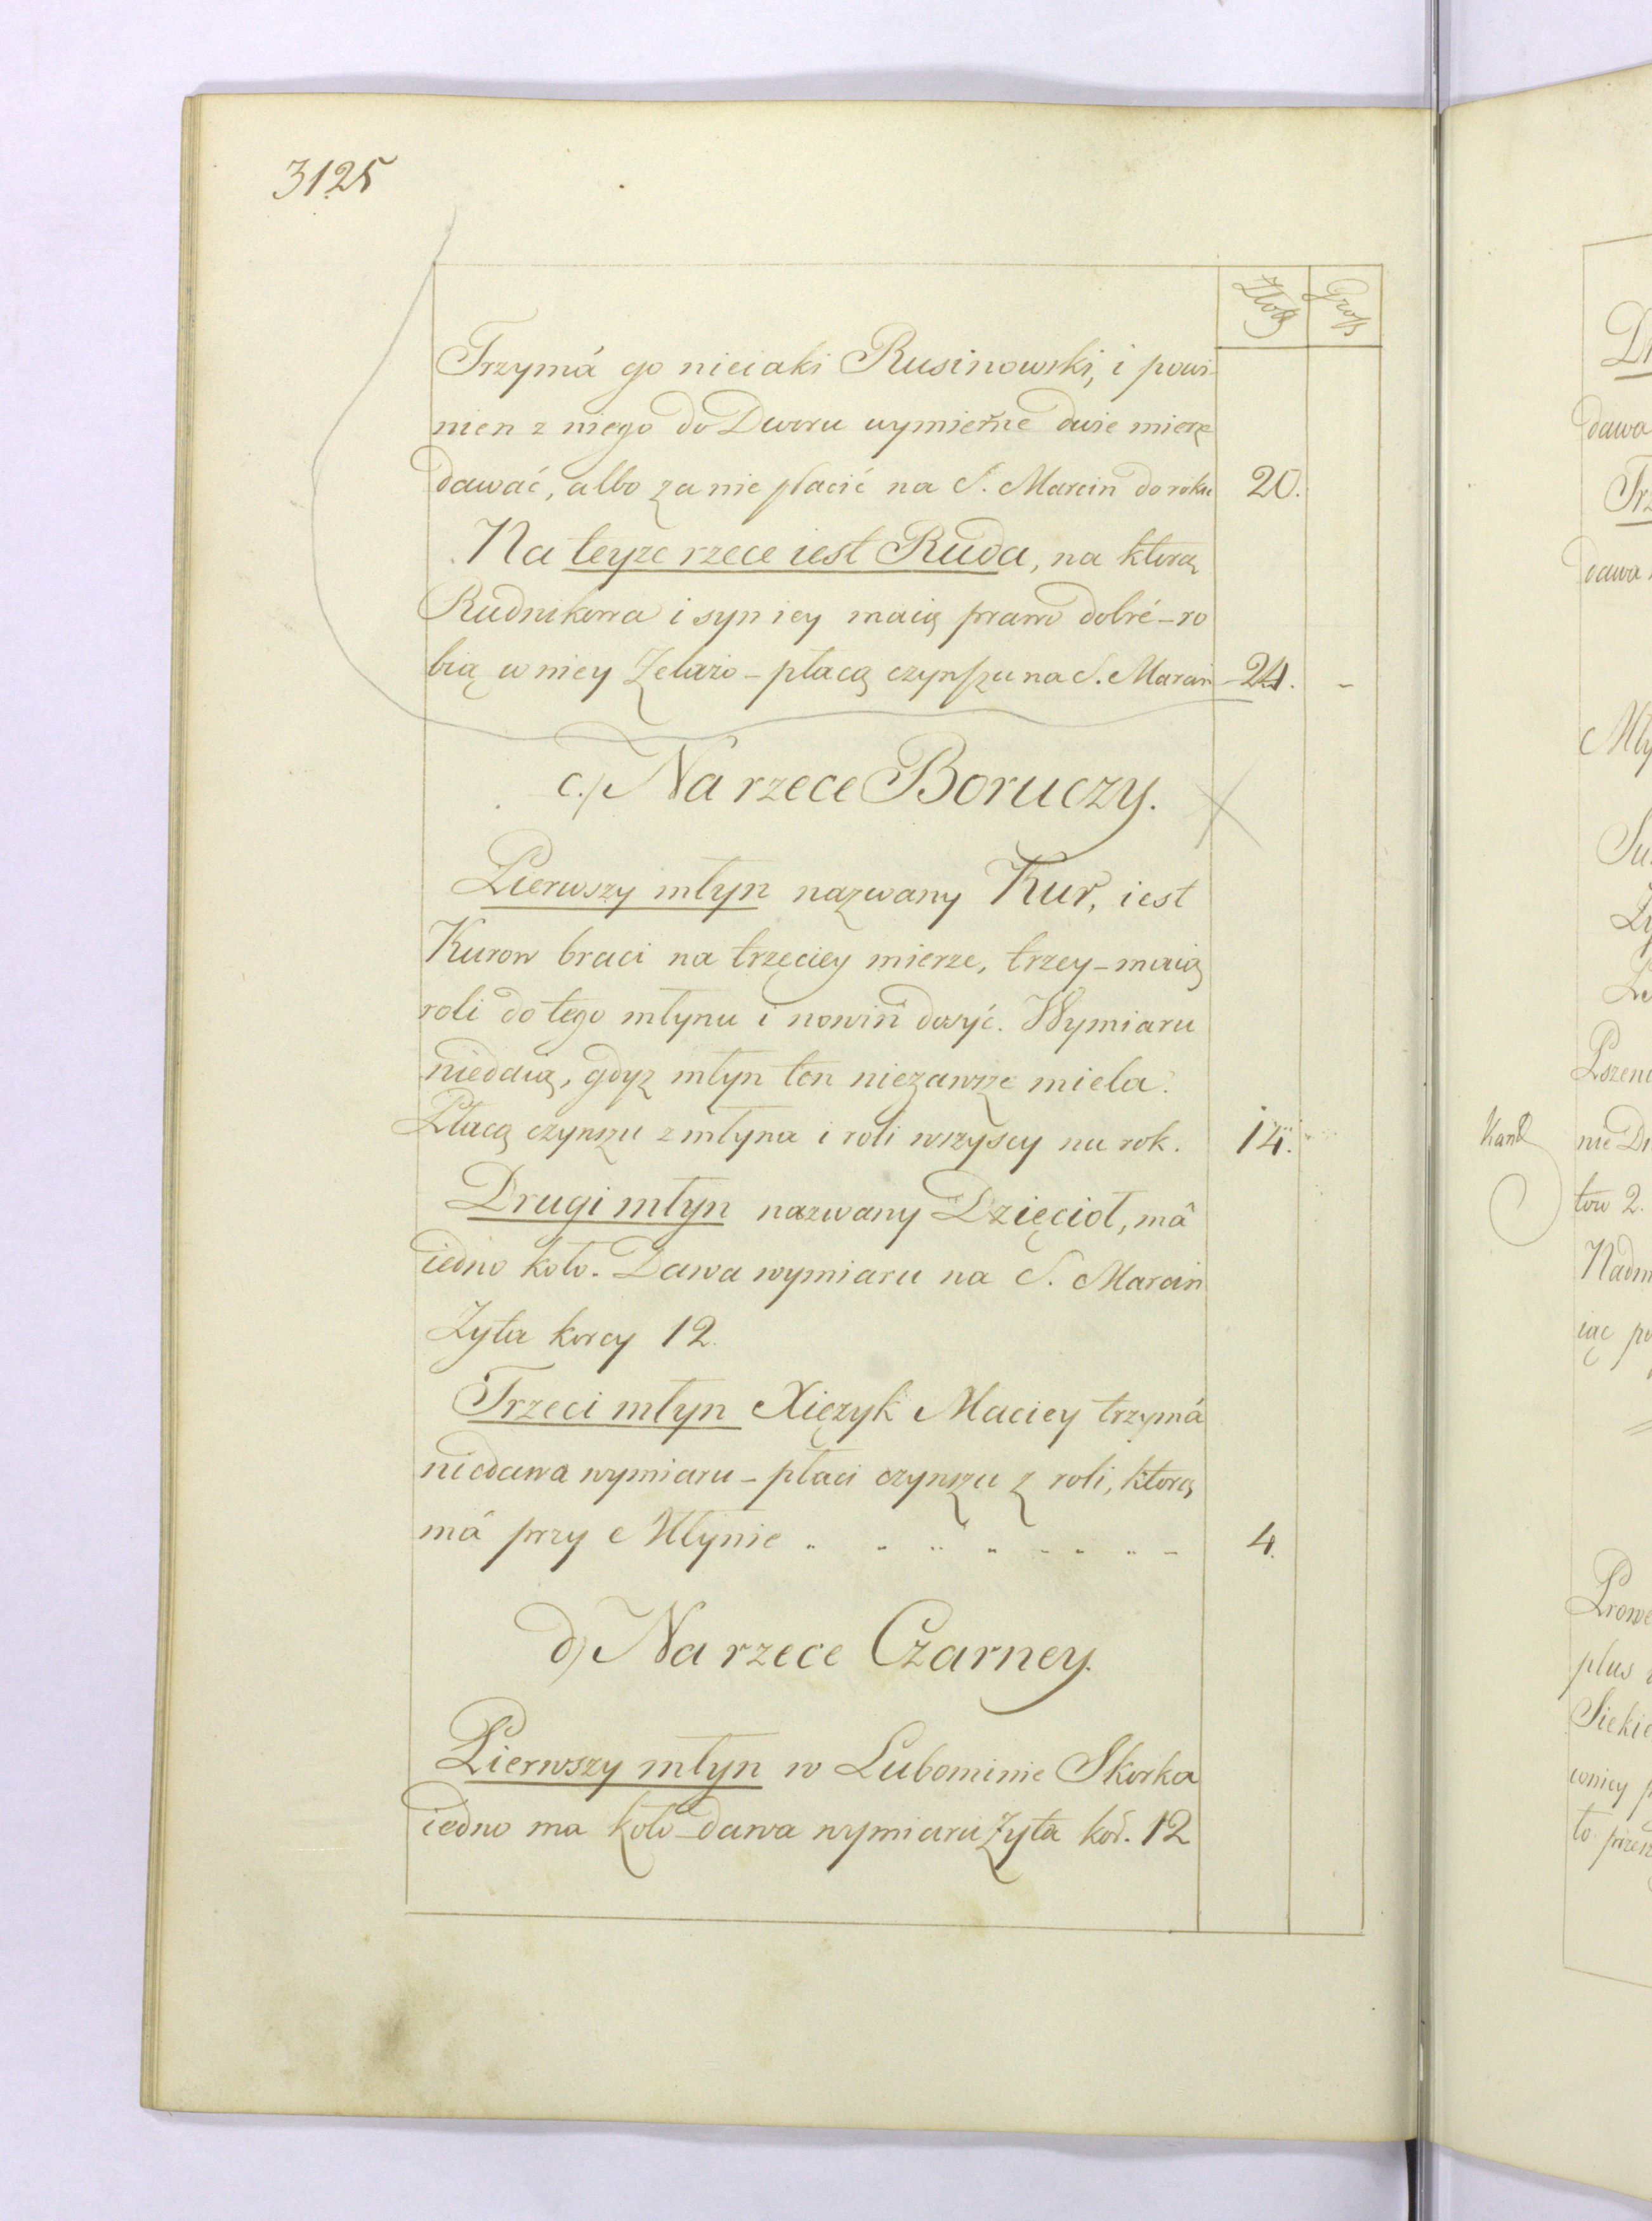 3125
Złoty Grosz
Trzymá go nieiaki Rusinowski, i powi-
nien z niego do Dworu wymierne dwie mierze
dawać, albo za nie płacić na S. Marcin do roku 20.
Na teyże rzece iest Ruda, na ktorą
Rudnikowa i syn iey maią prawo dobré - ro
bią w niey Żelazo - płacą czynszu na S. Marcin - 24. -
c.) Na rzece Boruczy.
Pierwszy młyn nazwany Kur, iest
Kurow braci na trzeciey mierze, trzey - maią
roli do tego młynu i nowin dosyć. Wymiaru
niedaią, gdyż młyn ten niezawsze miela.
Płacą czynszu z młyna i roli wszyscy na rok. 14.
Drugi młyn nazwany Dzięcioł, má
iedno koło. Dawa wymiaru na S. Marcin
Żyta korcy 12.
Trzeci młyn Xiężyk Maciey trzymá
niedawa wymiaru - płaci czynszu z roli, ktorą
má przy Młynie 4.
d) Na rzece Czarney.
Pierwszy młyn w Lubominie Skorka
iedno ma koło - dawa wymiaru Żyta kor. 12
Kant
dawa
Mły
nie
tow 2.
iąc
plus
to